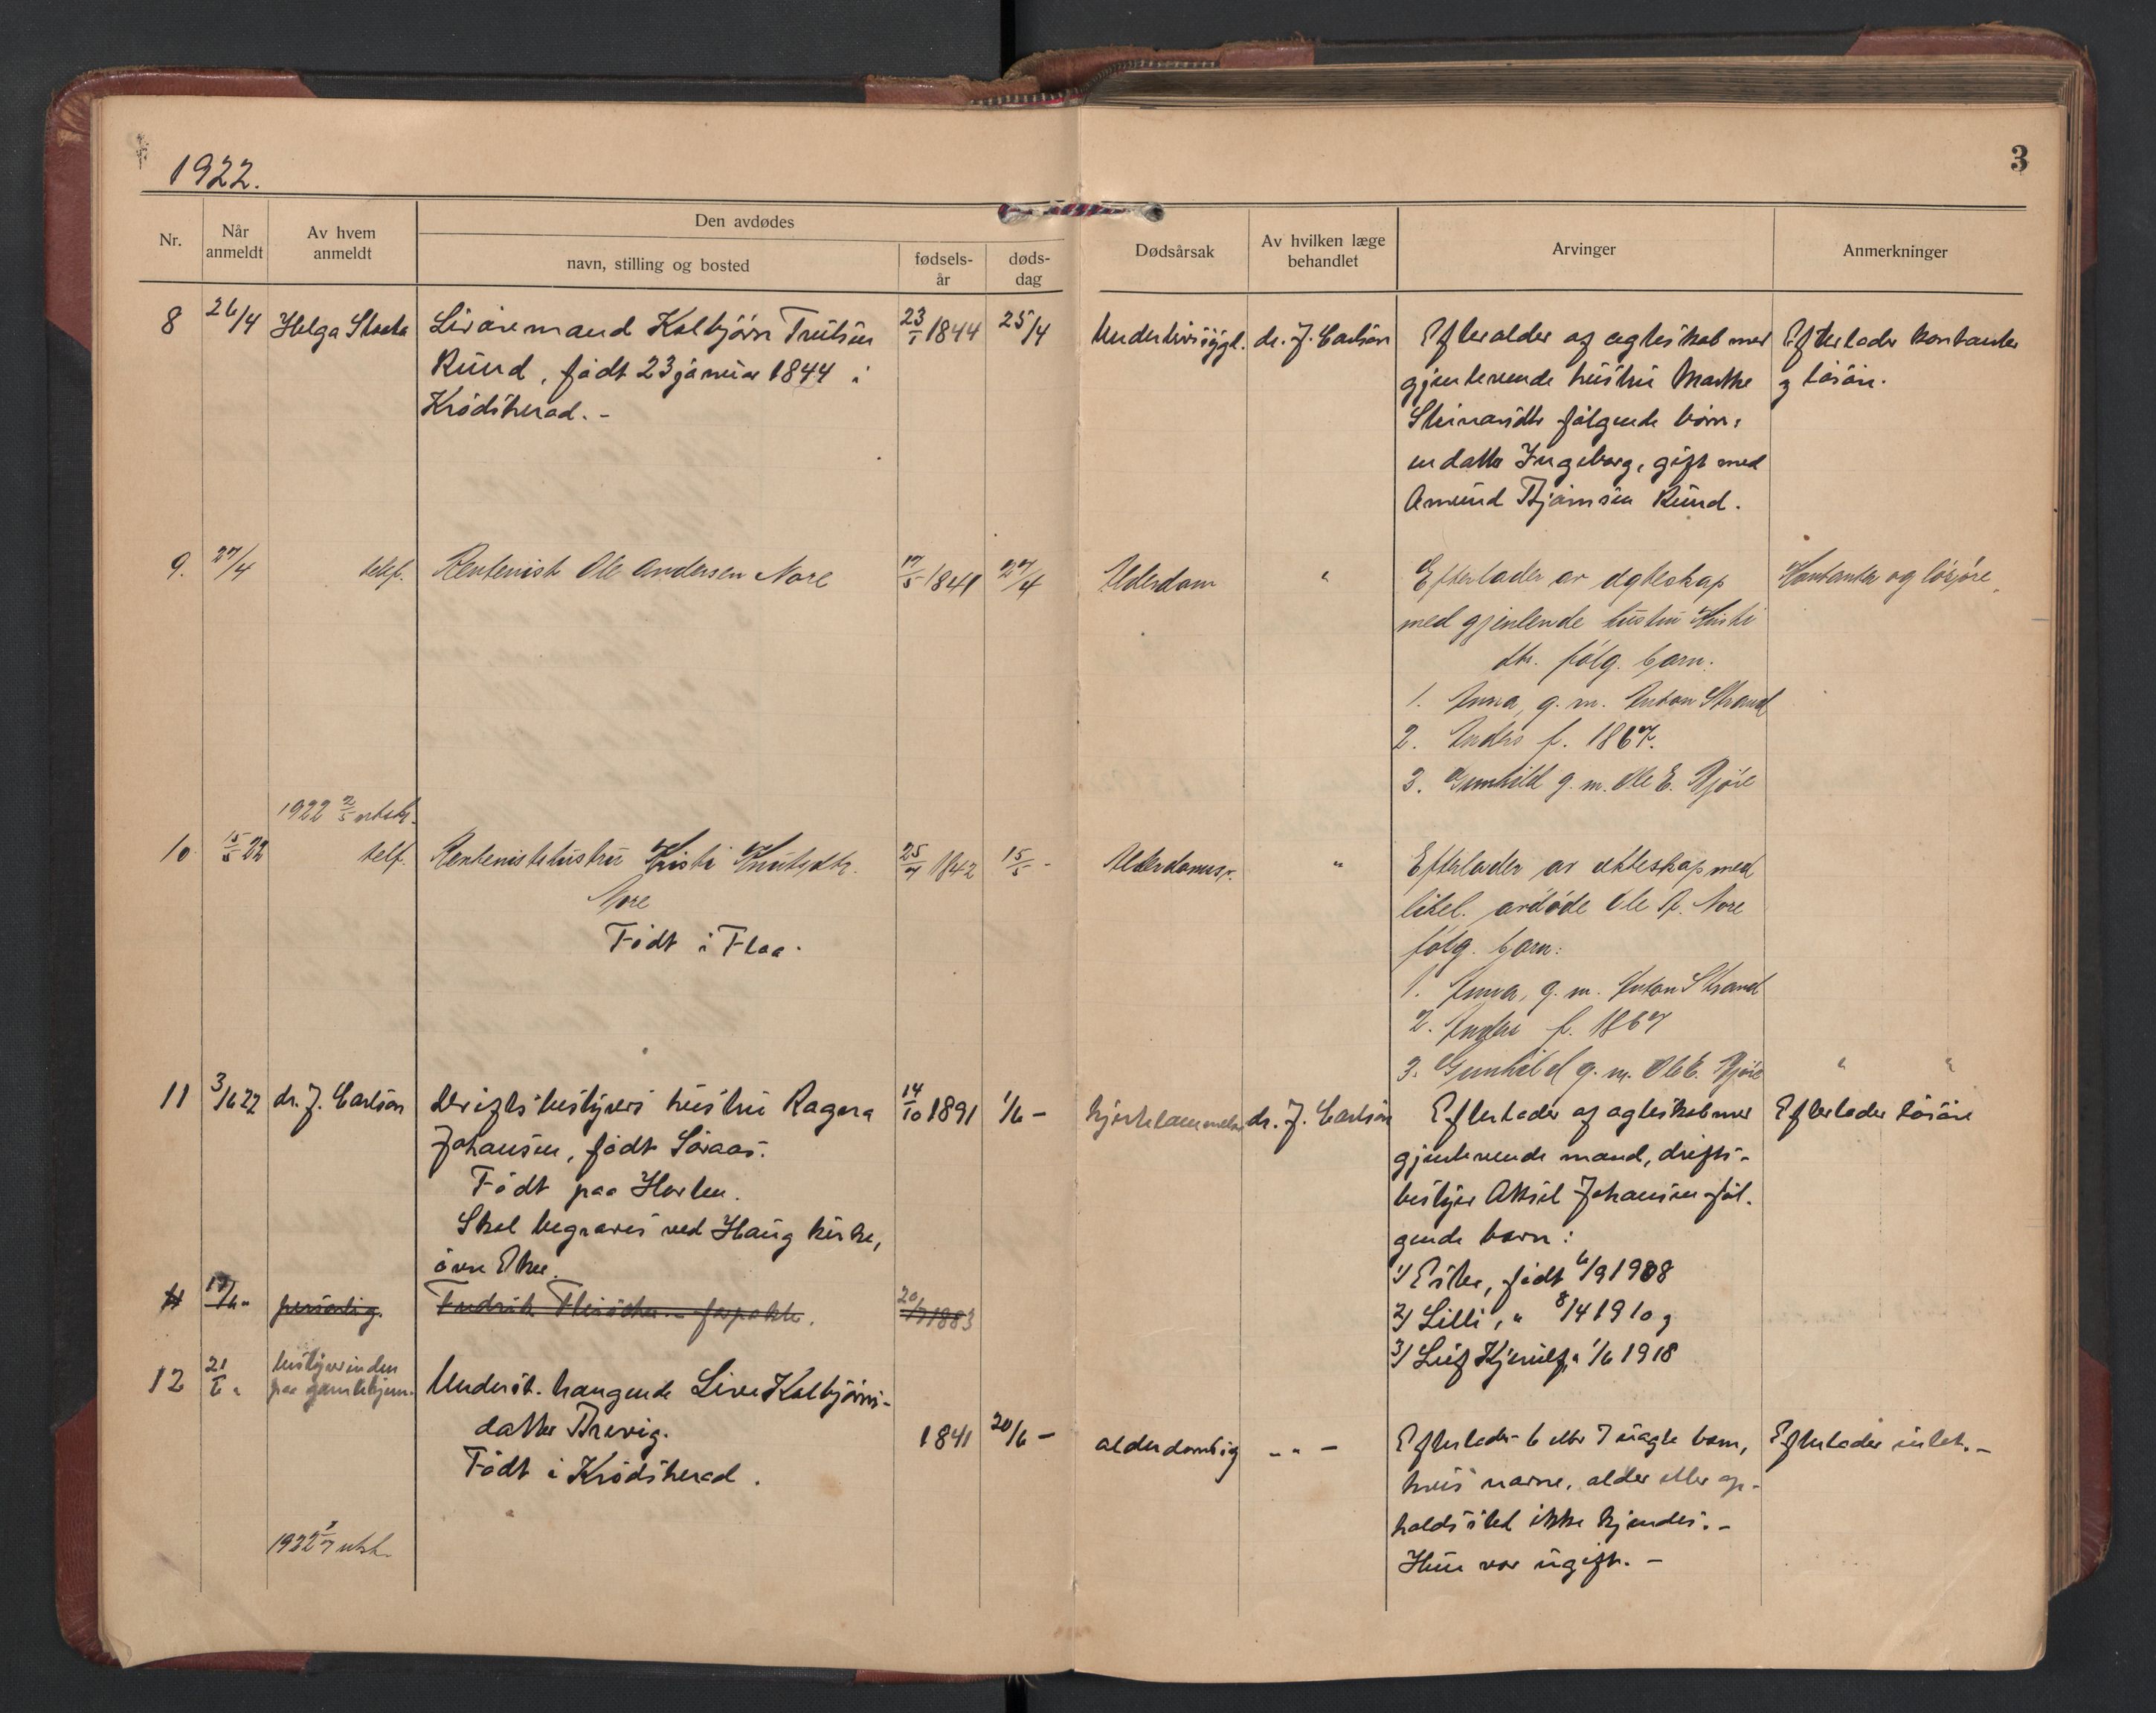 1922.
3
Nr.
Når anmeldt
Av hvem anmeldt
Den avdødes
navn, stilling og bosted
fødsels-år
døds-dag
Dødsårsak
Av hvilken læge behandlet
Arvinger
Anmerkninger
8 26/4 Helga
Livøremand Kolbjörn Trulsen
Rund, født 23 januar 1844 i
Krödsherad. -
23/1 1844 25/4
Underlivssygd. dr. J. Carlson
Efterlader af ægteskab med
gjenlevende hustru Marthe
følgende børn:
en datter Ingeborg, gift med
Amund Bjørnsen Rund.
Efterlader kontanter
og løsøre.
9. 27/4 telef. Rentenist Ole Andersen Nore
17/5 1841 27/4
Alderdom "
Efterlader av egteskap
med gjenlevende hustru Kristi
dtr. følg. barn:
1. Anna, g. m. Anton Strand
2. Anders f. 1867.
3. Gunhild g. m. Ole E. Bjøre
Kontanter og løsøre.
1922 2/5 utskr.
10 15/5 22 telf. Rentenisthustru Kristi Knutsdtr.
Nore
Født i Flaa.
25/7 1842 15/5 -
Alderdomssv. "
Efterlader av ekteskap med
tidl. avdøde Ole A. Nore
følg. barn:
1. Anna, g. m. Anton Strand
2. Anders f. 1867
3. Gunhild g. m. Ole E. Bjøre
" "
11 3/6 22 dr. J. Carlson Driftsbestyrers hustru Ragna
Johansen, født Søraas.
Født paa Horten.
Skal begraves ved Haug kirke,
övre Eker.
14/10 1891 1/6 -
Hjertelammelse dr. J. Carlson
Efterlader af ægteskab med
gjenlevende mand, drifts-
bestyrer Aksel Johansen føl-
gende børn:
1/ Ester, født 6/9 1908
2/ Lilli, " 8/4 1910 og
3/ Leif Kjerulf, " 1/6 1918
Efterlader løsøre
11 17/6 " personlig. Fredrik forpakter.
20/7 1883
12 21/6 " bestyrerinden
paa gamlehjem.
Underst. trængende Live Kolbjørns-
datter Brevig.
Født i Krödsherad.
1841 20/6 -
alderdomssvag - " -
Efterlader 6 eller 7 uægte børn,
hvis navne, alder eller op-
holdssted ikke kjendes. -
Hun var ugift. -
Efterlader intet. -
1922 1/7 utskr.